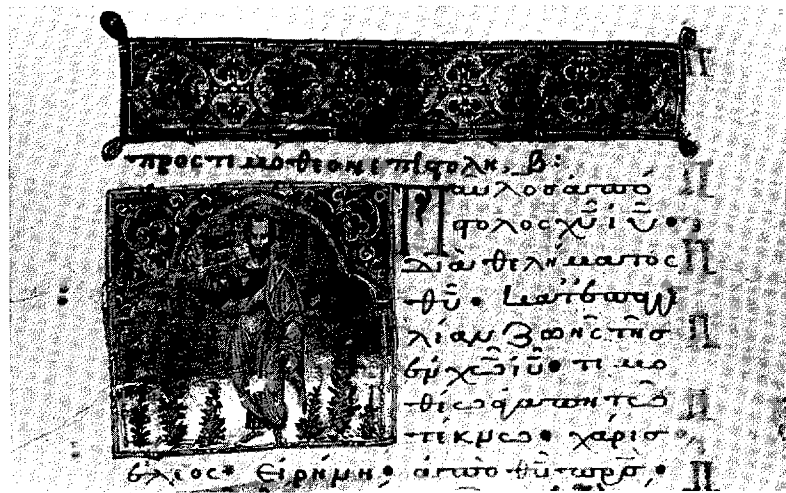 πρὸς τιμόθεον ἐπιϛολὴ, β:
Παῦλος ἀπό
ϛολος χυ ιυ •
διὰ θελήματος
θυ • κατ' ἐπαγγε
λίαν ζωῆς τῆς
ἐν χω ιυ • τιμο
θέω ἀγαπητῶ
τέκνω • χάρις
ἔλεος • εἰρήνη • ἀπὸ θυ πρς •